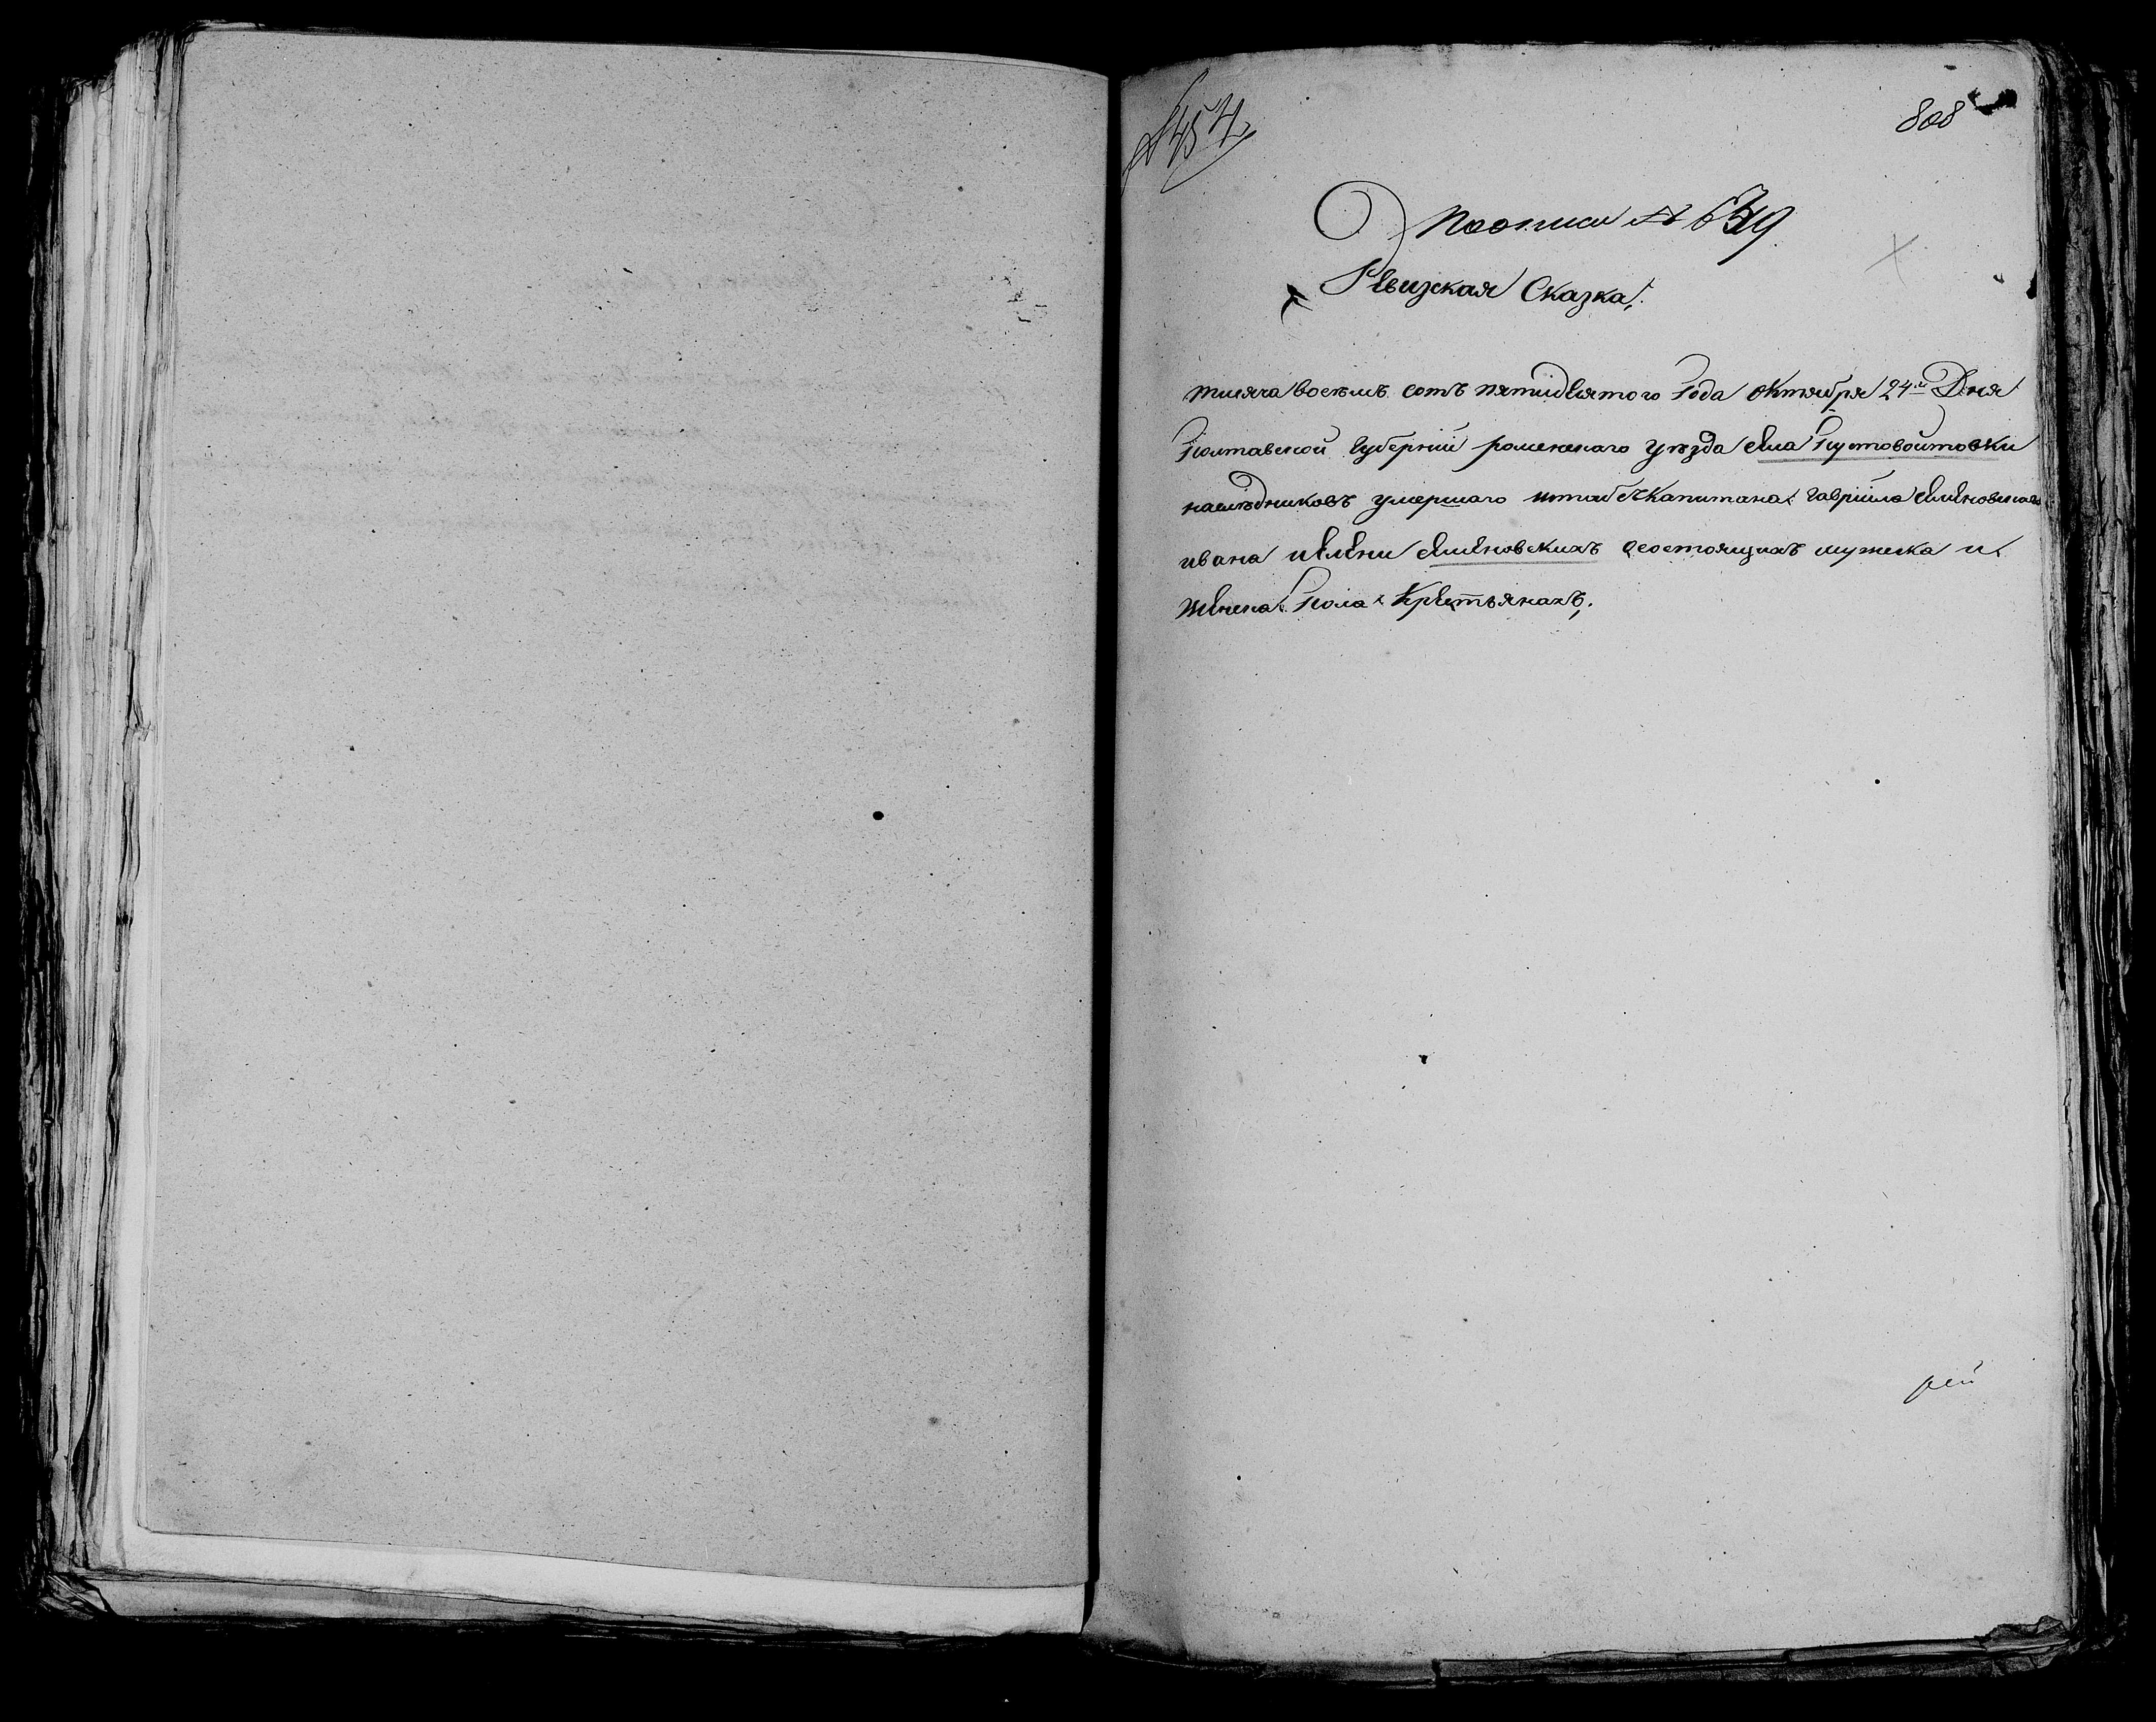 № 454
808
По описи № 639
Ревизская Сказка,
тысяча восемь сотъ пятидесятого Года октября 24го Дня
Полтавской Губерніи роменского уезда села Пустовойтовки
наследниковъ умершаго штабсъ Капитана Гавріила
ивана и елены состоящихъ мужеска и
женска Пола Крестьянахъ,